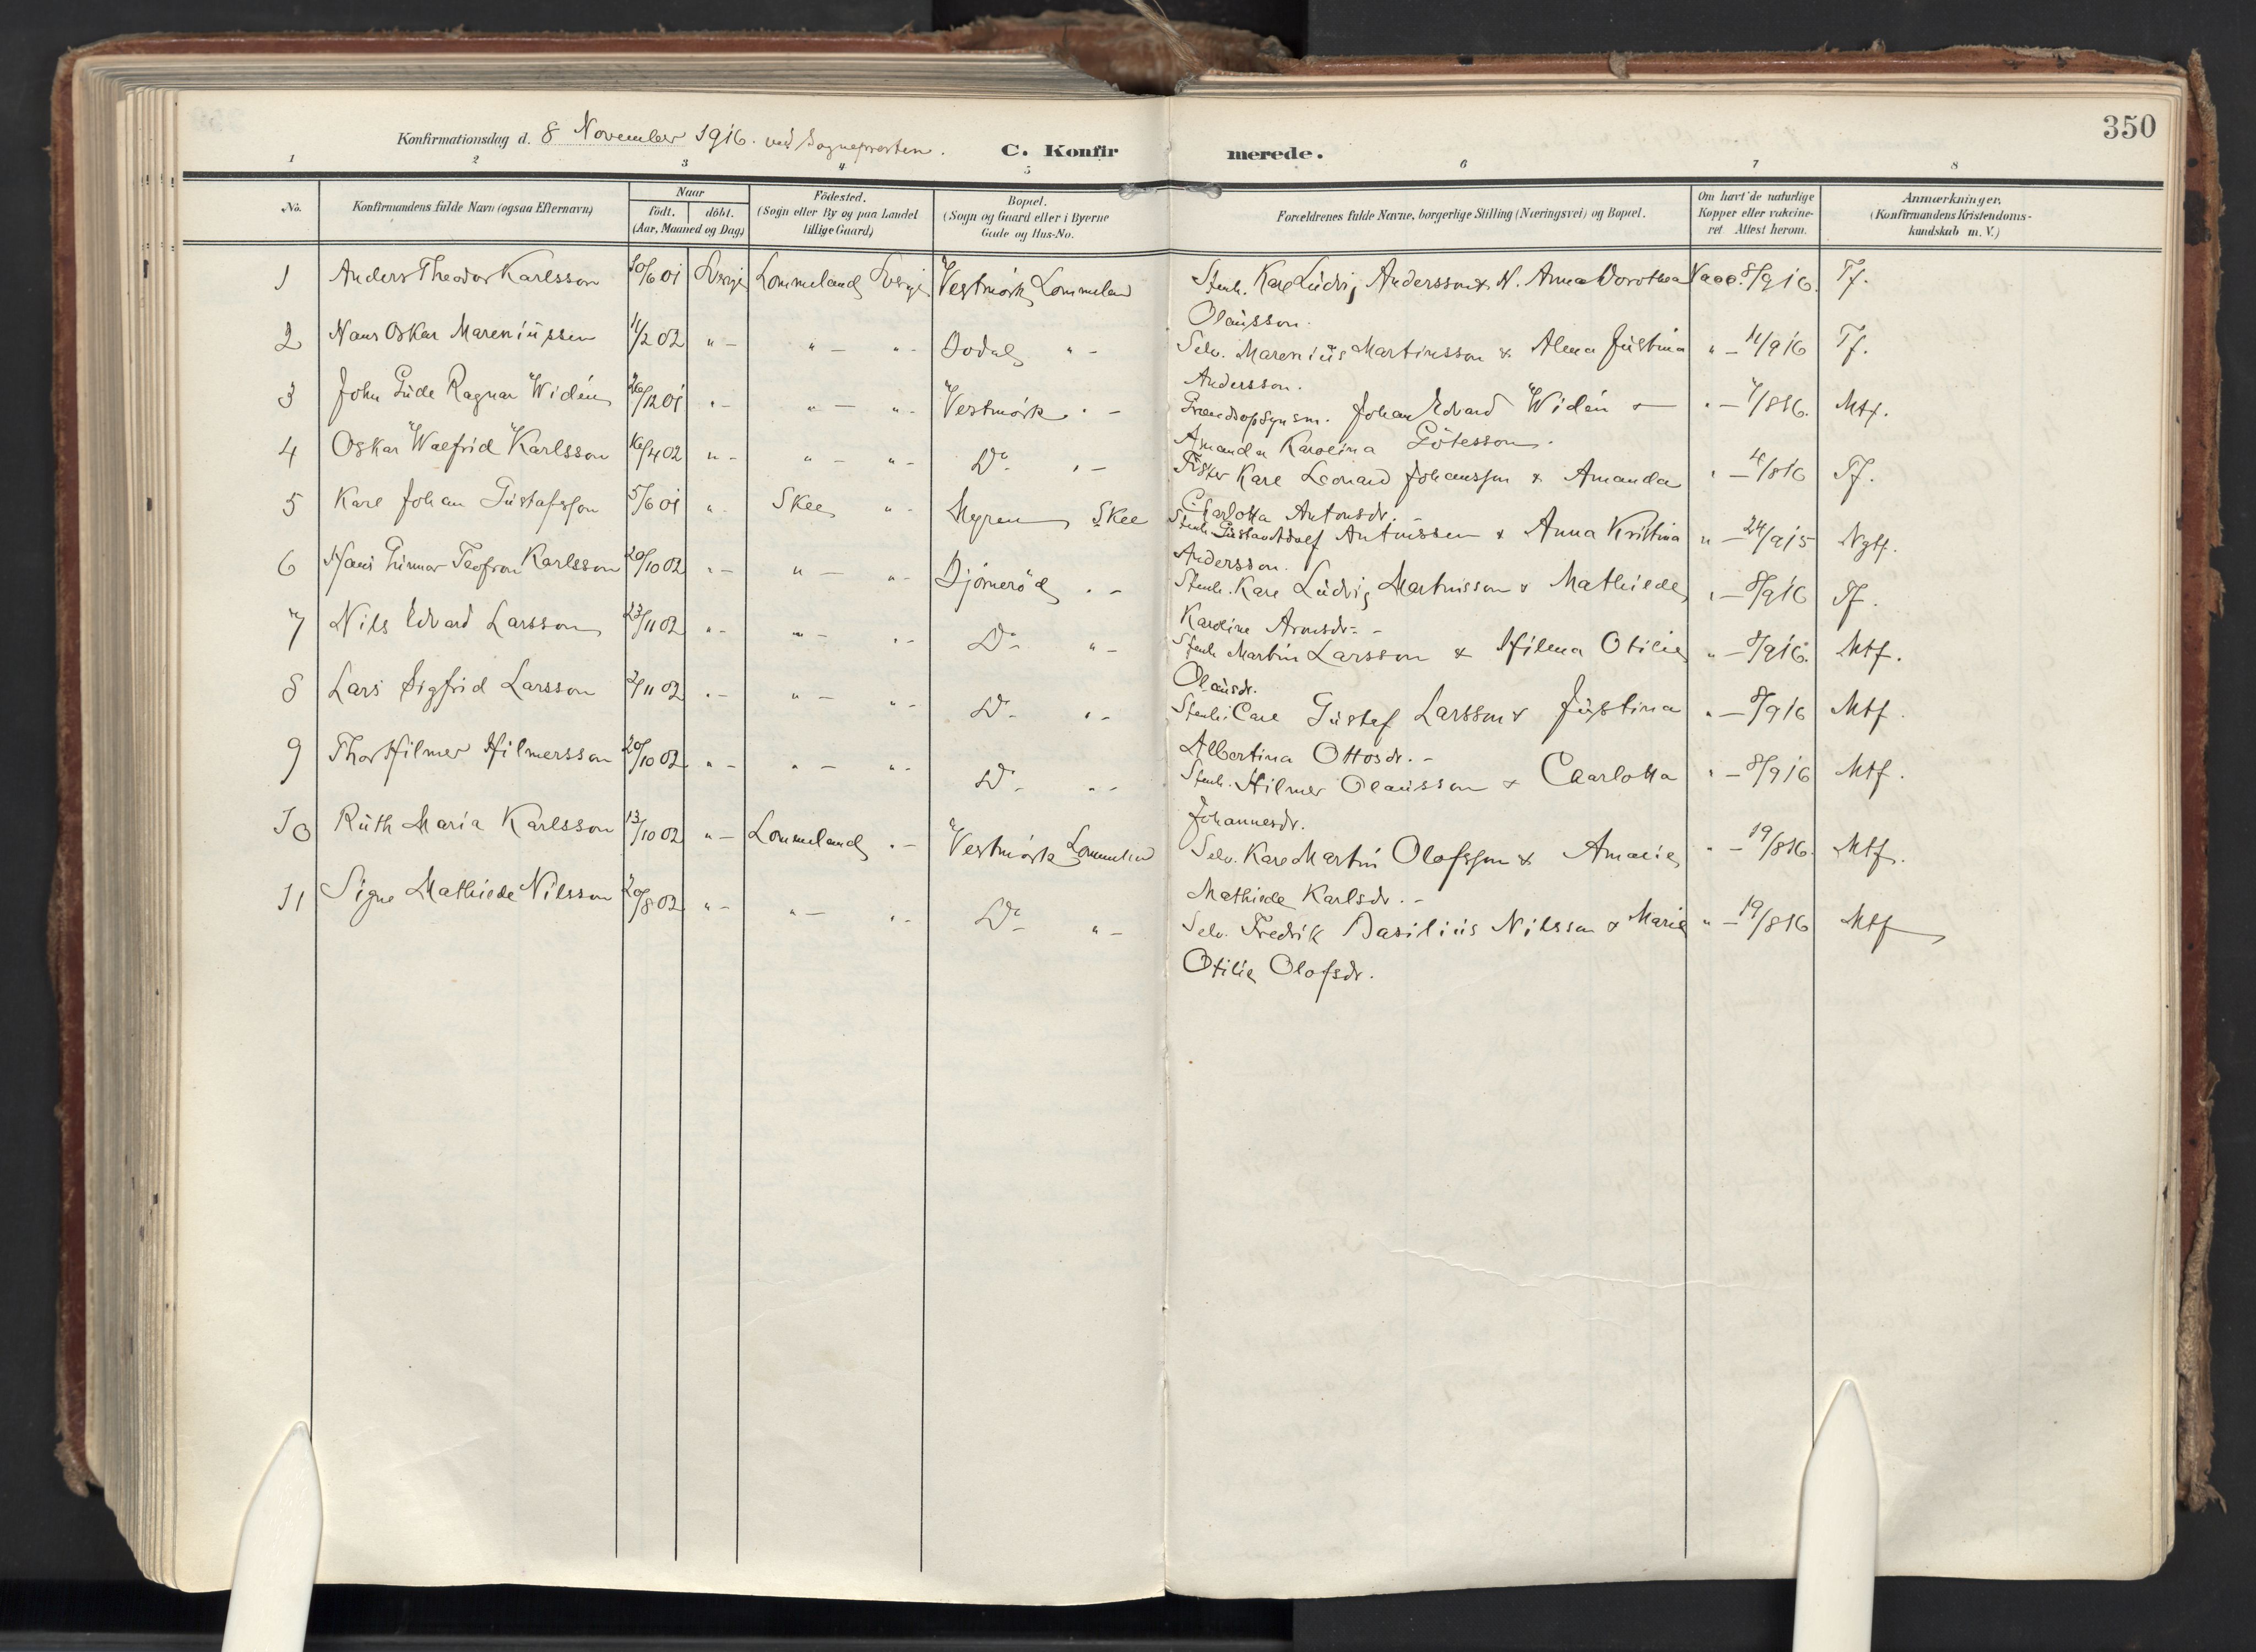 350
Konfirmationsdag d. 8 November 1916. ved Sognepresten.
C. Konfirmerede.
1 2 3 4 5 6 7 8
No.
Konfirmandens fulde Navn (ogsaa Efternavn)
Naar
födt. döbt.
(Aar, Maaned og Dag)
Födested.
(Sogn eller By og paa Landet
tillige Gaard)
Bopæl.
(Sogn og Gaard eller i Byerne
Gade og Hus-No.
Forældrenes fulde Navne, borgerlige Stilling (Næringsvei) og Bopæl.
Om havt de naturlige
Kopper eller vakcine-
ret Attest herom.
Anmærkninger.
(Konfirmandens Kristendoms-
kundskab m. V.)
1 Anders Theodor Karlsson 10/6 01 Sverge Lommeland Sverge Vestmørk Lommeland Stenh. Karl Ludvig Andersson & H. Anna Dorothea Vacc. 8/9 16. Tf.
Olausson.
2 Hans Oskar Mareniussen 11/2 02 " - " - " - Dodal " - Selv. Marenius Martinsson & Alma Justina " - 11/9 16 Tf.
Andersson.
3 John Gude Ragnar Widén 26/12 01 " - " - " - Vestmørk " - Grændsopsynsm. Johan Edvard Widén & " - 7/8 16. Mtf.
Amanda Karolina Götesson.
4 Oskar Walfrid Karlsson 16/4 02 " - " - " - Do " - Fisker Karl Leonard Johansson & Amanda " - 4/8 16 Tf.
Charlotta Antonsdr. -
5 Karl Johan Gustafsson 5/6 01 " Skee " - Myren, Skee Stenh. Gustav Adolf Antonssen & Anna Kristina " - 24/9 15 Ngtf.
Andersson.
6 Hans Gunnar Teofron Karlsson 20/10 02 " - " - " - Björneröd " - Stenh. Karl Ludvig Martinsson & Mathilde " - 8/9 16 Tf.
Karoline Aronsdr. -
7 Nils Edvard Larsson 23/11 02 " - " - " - Do " - Stenh Martin Larsson & Hilma Otilie " - 8/9 16. Mtf.
Olausdr.
8 Lars Sigfrid Larsson 2/11 02 " - " - " - Do " - Stenh. Carl Gustaf Larsson & Justina " - 8/9 16 Mtf.
Albertina Ottosdr. -
9 Thor Hilmer Hilmersson 20/10 02 " - " - " - Do " - Stenh. Hilmer Olausson & Charlotta " - 8/9 16 Mtf.
Johannesdr.
10 Ruth Maria Karlsson 13/10 02 " - Lommeland " - Vestmørk Lommeland Selv. Karl Martin Olofsson & Amalie " - 19/8 16. Mtf.
Mathilde Karlsdr. -
11 Signe Mathilde Nilsson 20/8 02 " - " - " - Do " - Selv. Fredrik Basilius Nilsson & Marie " - 19/8 16 Mtf
Otilie Olofsdr.